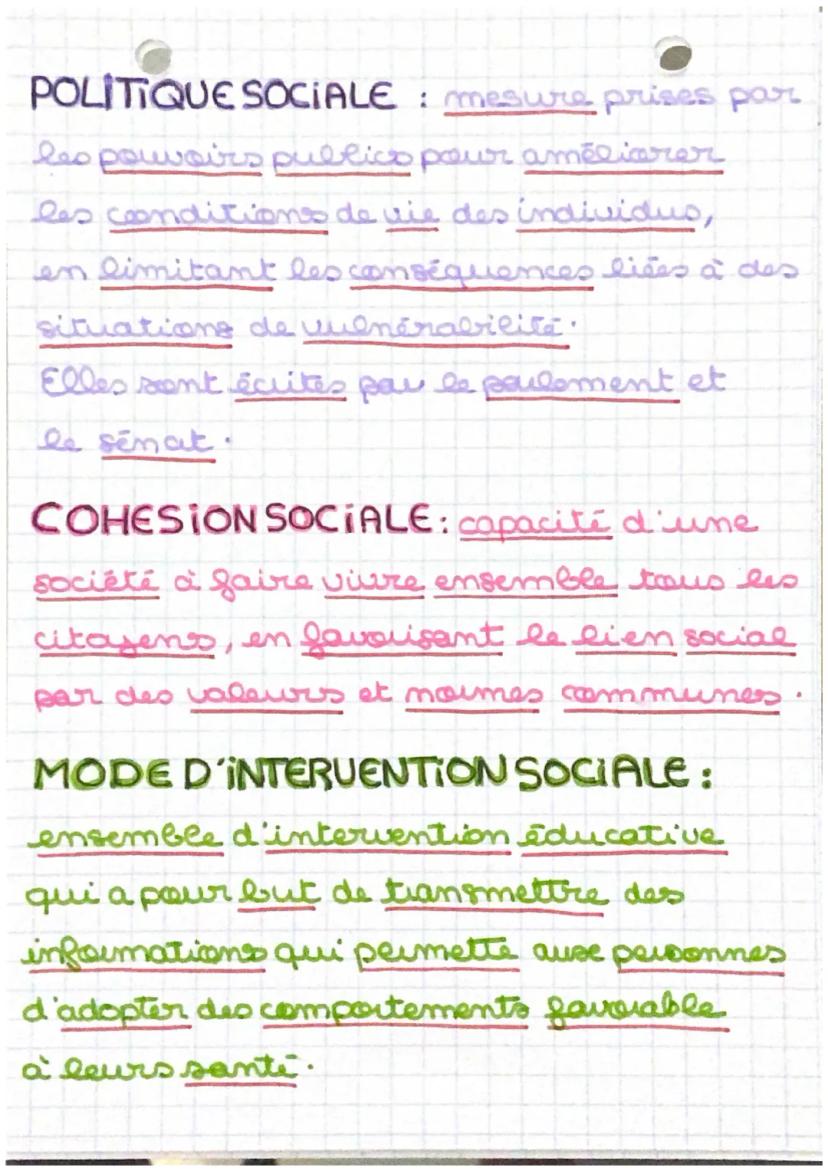 POLITIQUE SOCIALE : mesure prises par
les pouvoirs publics pour améliorer
les conditions de vie des individus,
en limitant les conséquences liées à des
situations de vulnérabilité.
Elles sont écrites par le parlement et
le sénat.
COHESION SOCIALE : capacité d'une
société à faire vivre ensemble tous les
citoyens, en favorisant le lien social
par des valeurs et normes communes.
MODE D'INTERVENTION SOCIALE :
ensemble d'intervention éducative
qui a pour but de transmettre des
informations qui permette aux personnes
d'adopter des comportements favorable
à leurs santé.